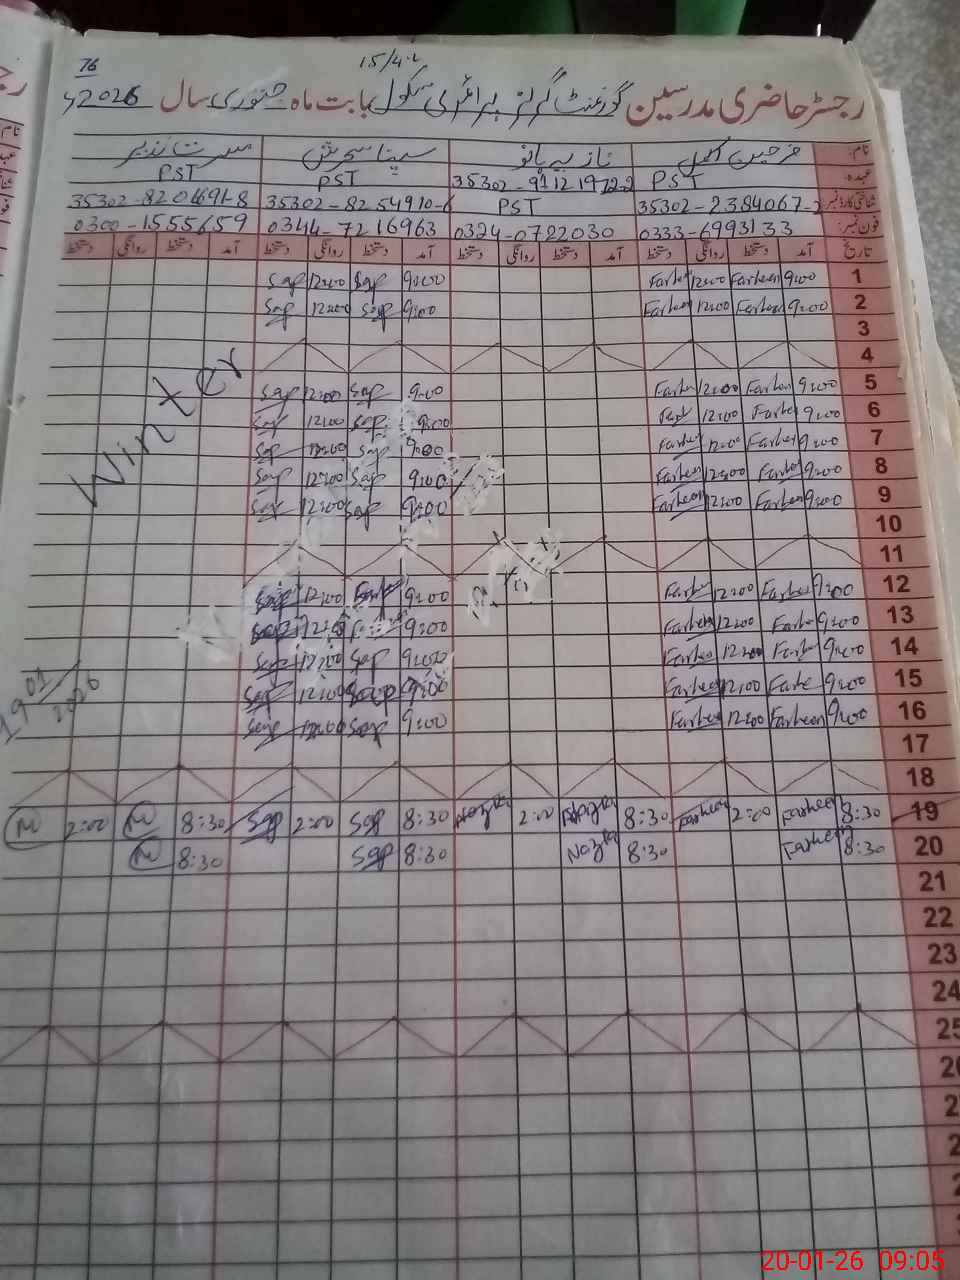 76
15/4-L
رجسٹر حاضری مدرسین گورنمنٹ گرلز پرائمری سکول بابت ماہ جنوری سال 2026ء
نام: فرحین اکمل نازیہ بانو سپنا سحرش مسرت نذیر
عہدہ: PST 35302-9112197-2-2 PST PST
شناختی کارڈ نمبر 35302-2384067-2 PST 35302-8254910-6 35302-8201691-8
فون نمبر: 0333-6993133 0324-0722030 0344-7216963 0300-1555659
تاریخ آمد دستخط روانگی دستخط آمد دستخط روانگی دستخط آمد دستخط روانگی دستخط آمد دستخط روانگی دستخط
1 9:00 Farheen 12:00 Farheen 9:00 Sap 12:00 Sap
2 9:00 Farheen 12:00 Farheen 9:00 Sap 12:00 Sap
3
4
5 9:00 Farheen 12:00 Farheen 9:00 Sap 12:00 Sap
6 9:00 Farhe 12:00 9:00 Sap 12:00 Sap
7 9:00 Farheen 12:00 Farheen 9:00 Sap 12:00 Sap
8 9:00 Farhe 12:00 Farheen 9:00 Sap 12:00 Sap
9 9:00 Farheen 12:00 Farheen 9:00 Sap 12:00 Sap
10
11
12 9:00 Farheen 12:00 Farhe 9:00 12:00 Sap
13 9:00 Farhe 12:00 Farheen 9:00 12:00 Sap
14 9:00 Farhe 12:00 Farheen 9:00 Sap 12:00 Sap
15 9:00 Farhe 12:00 Farheen 9:00 Sap 12:00 Sap
16 9:00 Farheen 12:00 Farheen 9:00 Sap 12:00 Sap
17
18
19 8:30 Farheen 2:00 Farheen 8:30 Nazia 2:00 Nazia 8:30 Sap 2:00 Sap 8:30 M 2:00 M
20 8:30 Farheen 8:30 Nazia 8:30 Sap 8:30 M
21
22
23
24
25
Winter
19 01/2026
20-01-26 09:05